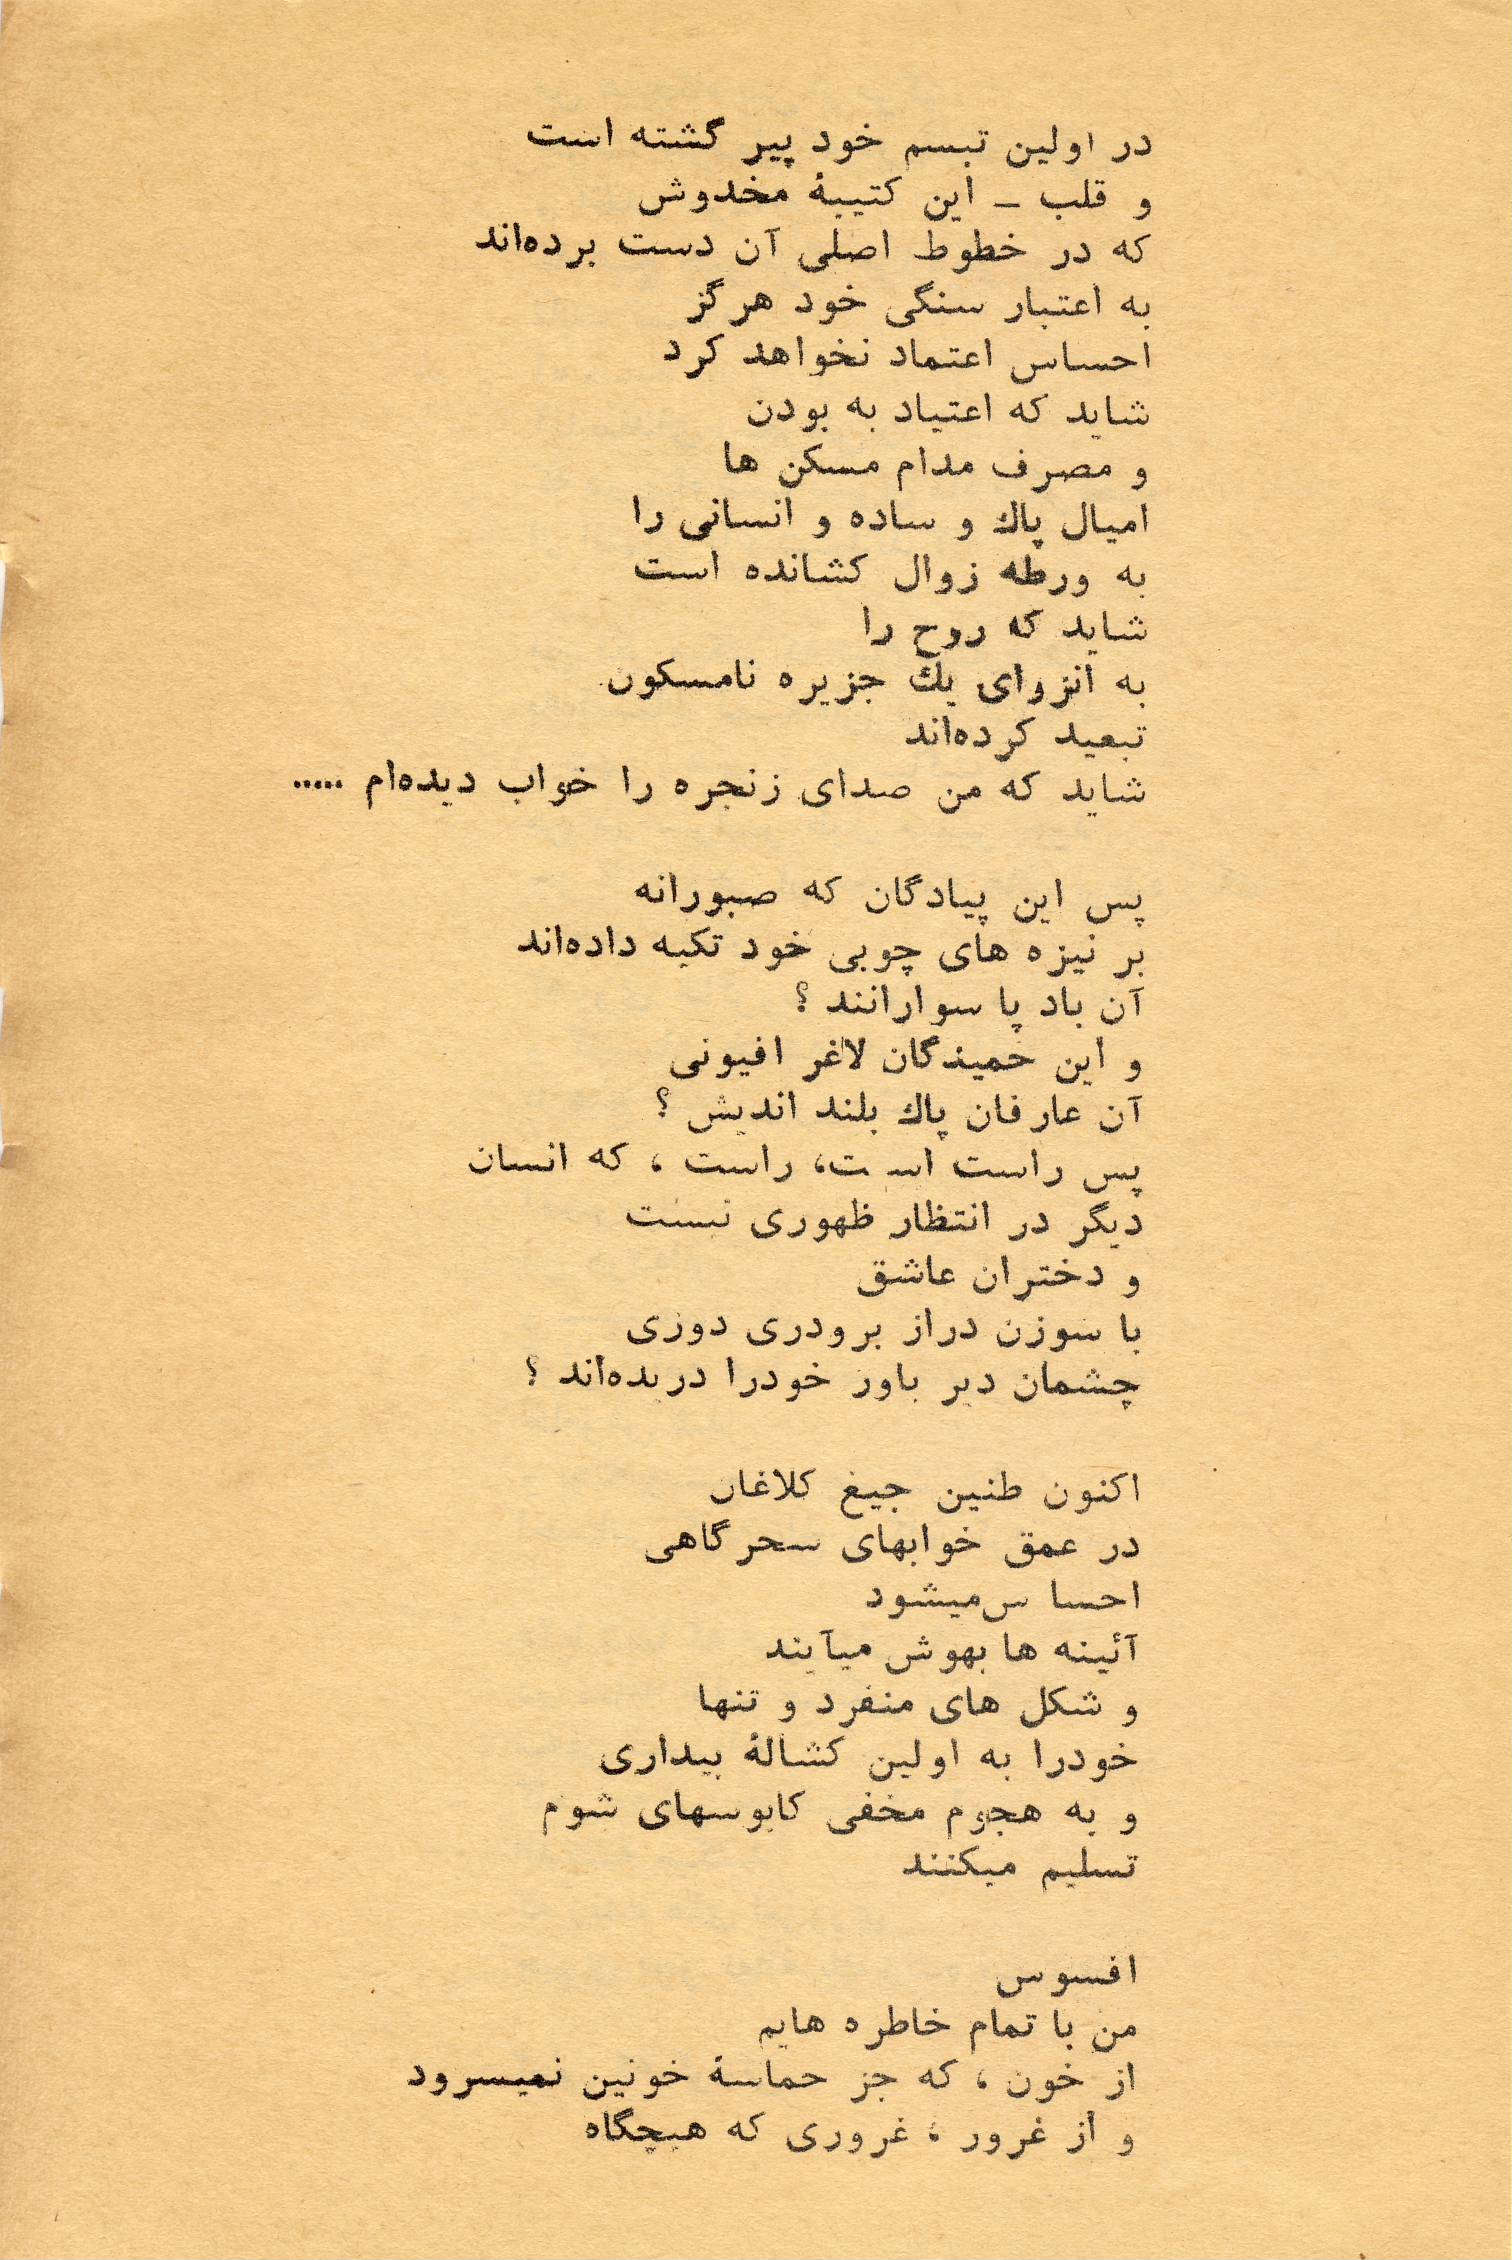 در اولین تبسم خود پیر گشته است
و قلب ـ این کتیبهٔ مخدوش
که در خطوط اصلی آن دست برده‌اند
به اعتبار سنگی خود هرگز
احساس اعتماد نخواهد کرد
شاید که اعتیاد به بودن
و مصرف مدام مسکن ها
امیال پاك و ساده و انسانی را
به ورطه زوال کشانده است
شاید که روح را
به انزوای یك جزیره نامسکون
تبعید کرده‌اند
شاید که من صدای زنجره را خواب دیده‌ام .....

پس این پیادگان که صبورانه
بر نیزه های چوبی خود تکیه داده‌اند
آن باد پا سوارانند ؟
و این خمیدگان لاغر افیونی
آن عارفان پاك بلند اندیش ؟
پس راست است، راست ، که انسان
دیگر در انتظار ظهوری نیست
و دختران عاشق
با سوزن دراز برودری دوزی
چشمان دیر باور خودرا دریده‌اند ؟

اکنون طنین جیغ کلاغان
در عمق خوابهای سحرگاهی
احساس میشود
آئینه ها بهوش میآیند
و شکل های منفرد و تنها
خودرا به اولین کشالهٔ بیداری
و به هجوم مخفی کابوسهای شوم
تسلیم میکنند

افسوس
من با تمام خاطره هایم
از خون ، که جز حماسهٔ خونین نمیسرود
و از غرور ، غروری که هیچگاه